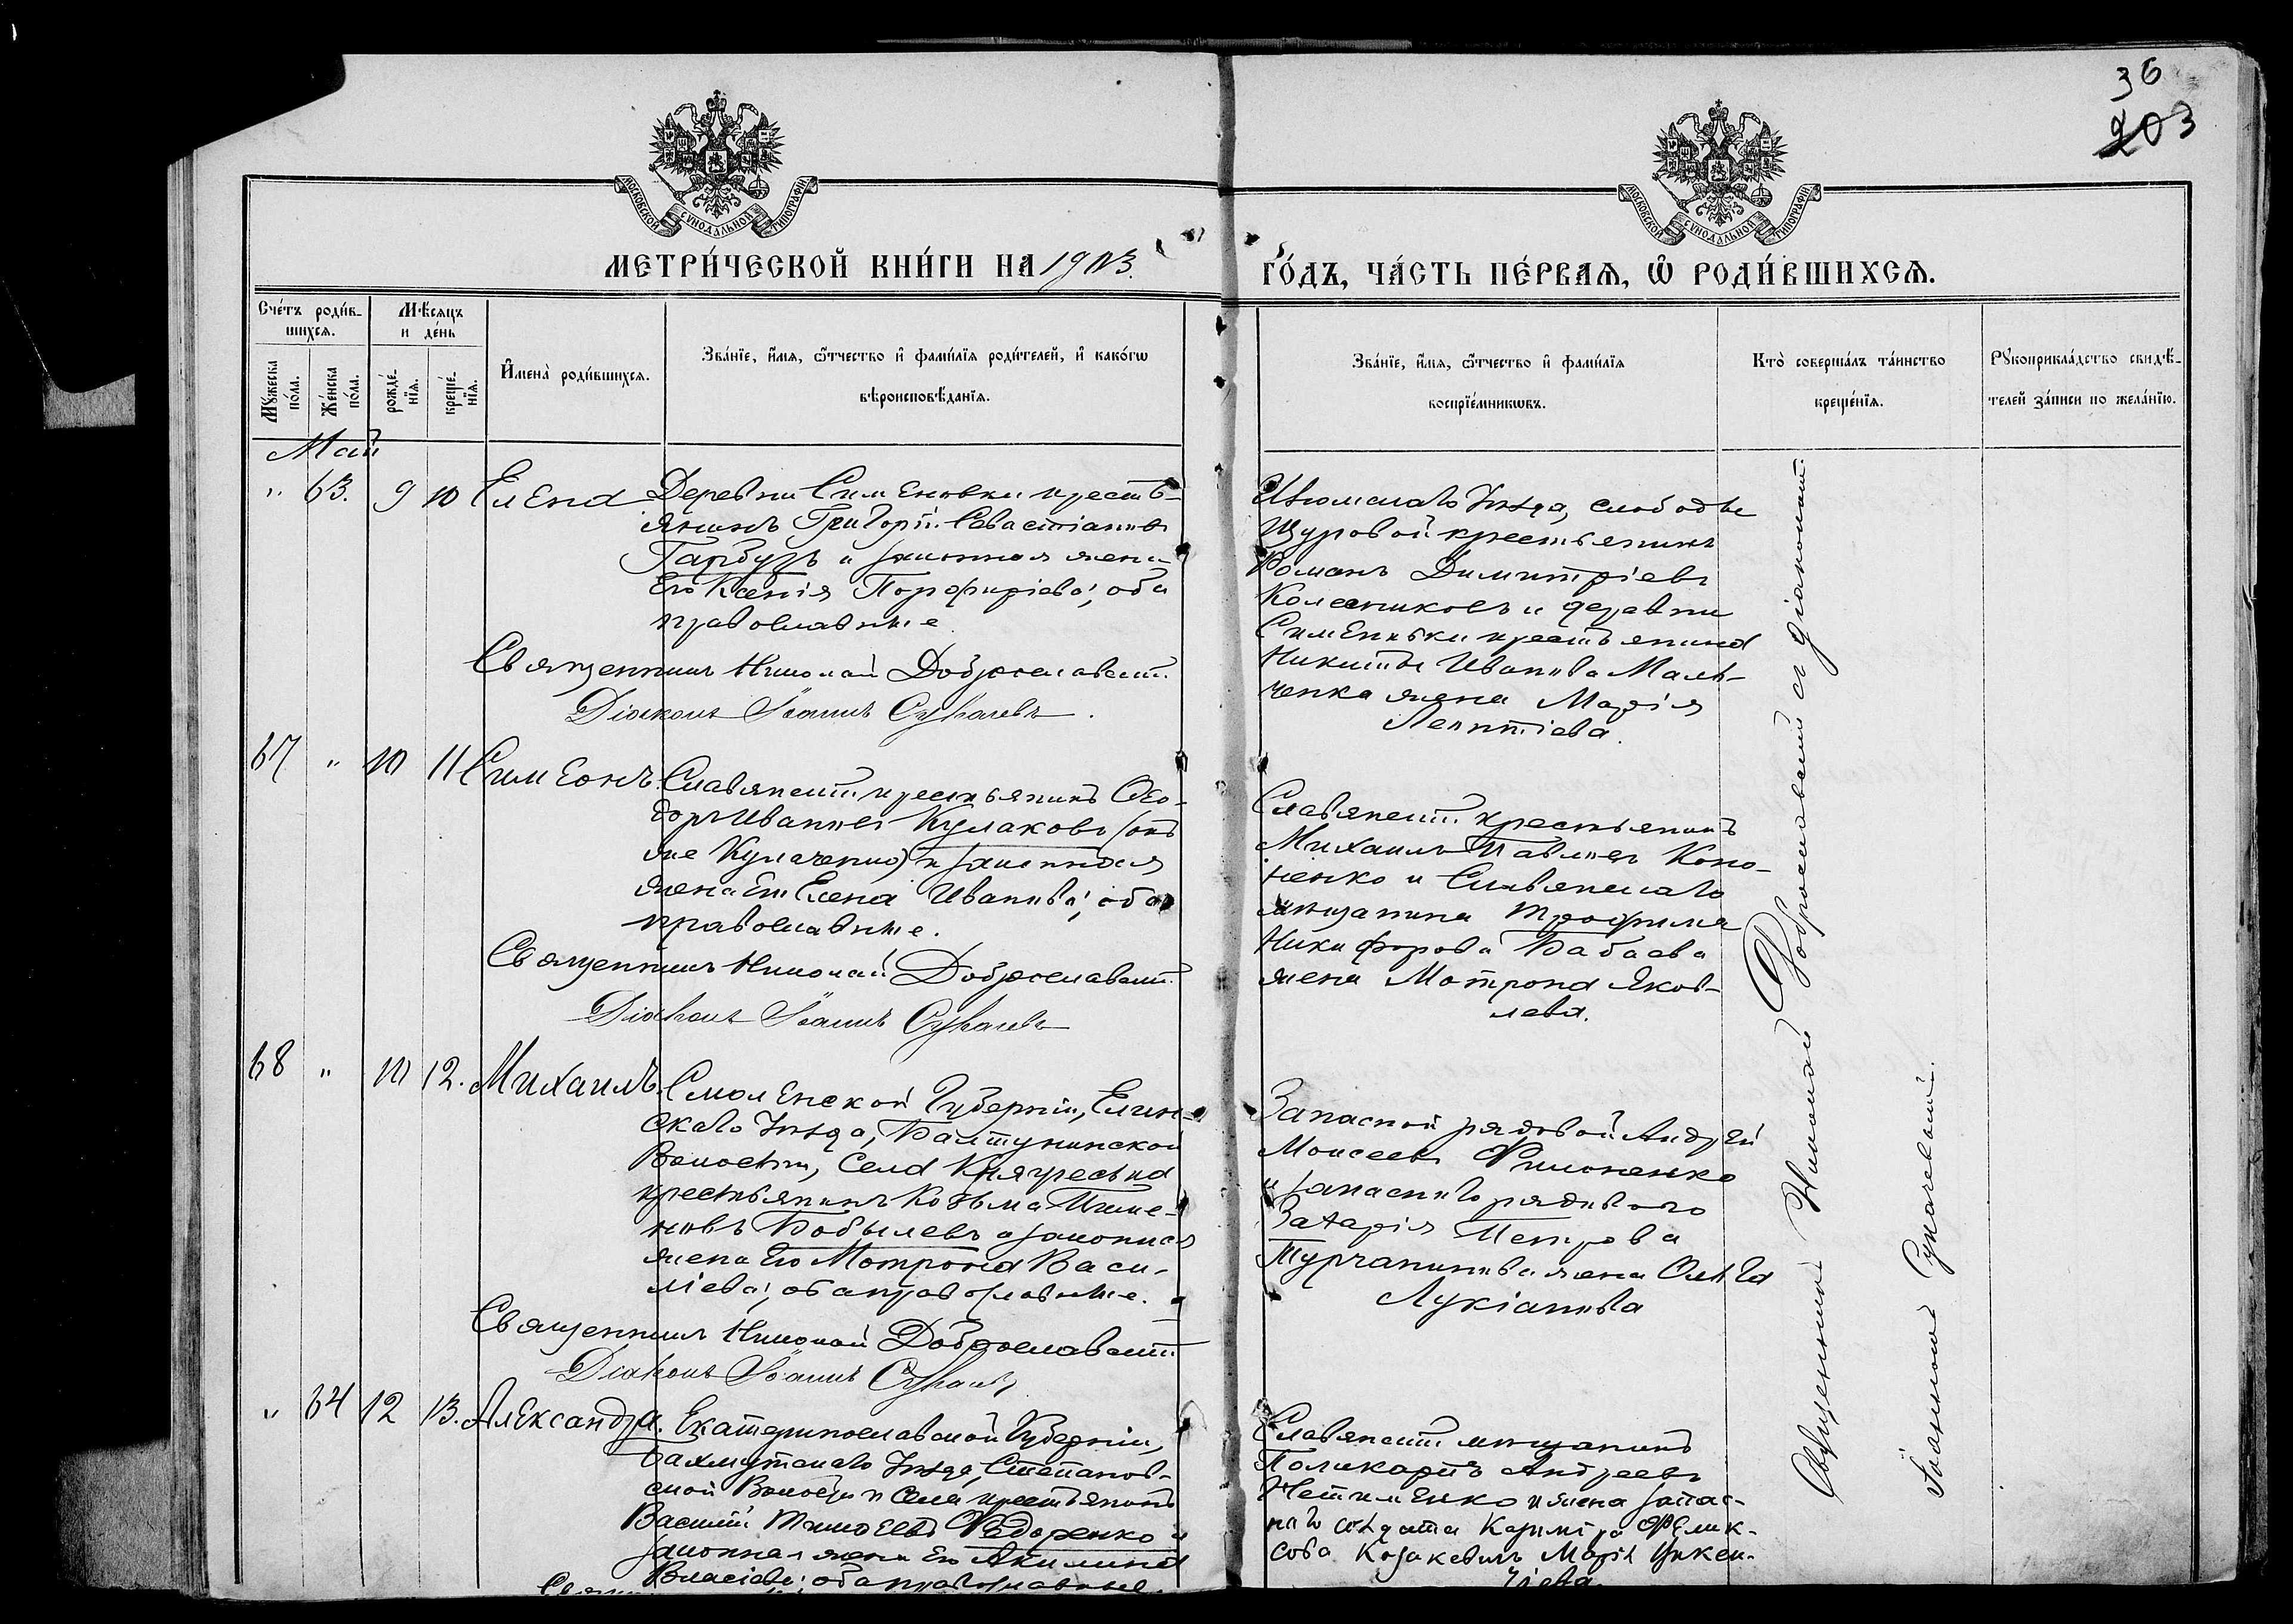 36
203
МОСКОВСКОЙ СѴНОДАЛЬНОЙ ТИПОГРАФІИ
МОСКОВСКОЙ СѴНОДАЛЬНОЙ ТИПОГРАФІИ
МЕТРИ́ЧЕСКОЙ КНИ́ГИ НА 1903.
ГО́ДЪ, ЧА́СТЬ ПЕ́РВАѦ, Ѡ РОДИ́ВШИХСѦ.
Сче́тъ роди́в-
шихсѧ.
Мѣ́сѧцъ
и де́нь
Мꙋ́жеска
по́ла.
Же́нска
по́ла.
рожде́-
нїѧ.
креще́-
нїѧ.
И҆мена̀ роди́вшихсѧ.
Зва́нїе, и҆́мѧ, ѻ҆́тчество и҆ фами́лїѧ роди́телей, и҆ како́гѡ
вѣроисповѣ́данїѧ.
Зва́нїе, и҆́мѧ, ѻ҆́тчество и҆ фами́лїѧ
воспрїе́мникѡвъ.
Кто̀ соверша́лъ та́инство
креще́нїѧ.
Рꙋкоприкла́дство свидѣ́-
телей за́писи по жела́нїю.
Май
" 63. 9 10 Елена
Деревни Сименовки кресть-
янинъ Григорій Севастіановъ
Гарбузъ и законная жена
его Ксенія Порфиріева; оба
православные
Священникъ Николай Доброславскій
Діаконъ Іоаннъ
Изюмскаго Уѣзда, слободы
Щуровой крестьянинъ
Романъ Димитріевъ
Колесниковъ и деревни
Сименовки крестьянина
Никиты Иванова Маль-
ченка жена Марія
Леонтіева.
67 " 10 11 Симеонъ.
Славянскій крестьянинъ Ѳео-
доръ Ивановъ Кулаковъ (онъ
же Кулаченко) и законная
жена его Елена Иванова; оба
православные.
Священникъ Николай Доброславскій
Діаконъ Іоаннъ
Славянскій крестьянинъ
Михаилъ Павловъ Коно-
ненко и Славянскаго
мѣщанина Трофима
Никифорова Бабаева
жена Мотрона Яков-
лева.
68 " 10 12. Михаилъ.
Смоленской Губерніи, Елин-
скаго Уѣзда, Балтутинской
Волости, села
крестьянинъ Козьма Пиме-
новъ Бобылевъ и законная
жена его Мотрона Васи-
ліева; оба православные.
Священникъ Николай Доброславскій
Діаконъ Іоаннъ
Запасной рядовой Андрей
Моисеевъ Филоненко
и запаснаго рядоваго
Захарія Петрова
Турчанинова жена Ольга
Лукіанова
" 64 12 13. Александра.
Екатеринославской Губерніи,
Бахмутскаго Уѣзда, Степанов-
ской Волости и села крестьянинъ
Василій Тимоѳеевъ Ѳедоренко и
законная жена его Акилина
Власіева; оба православные.
Славянскій мѣщанинъ
Поликарпъ Андреевъ
Нетименко и жена запас-
наго солдата Казиміра Фелик-
сова Козакевичъ Марія
Священникъ Николай Доброславскій съ діакономъ
Іоанномъ